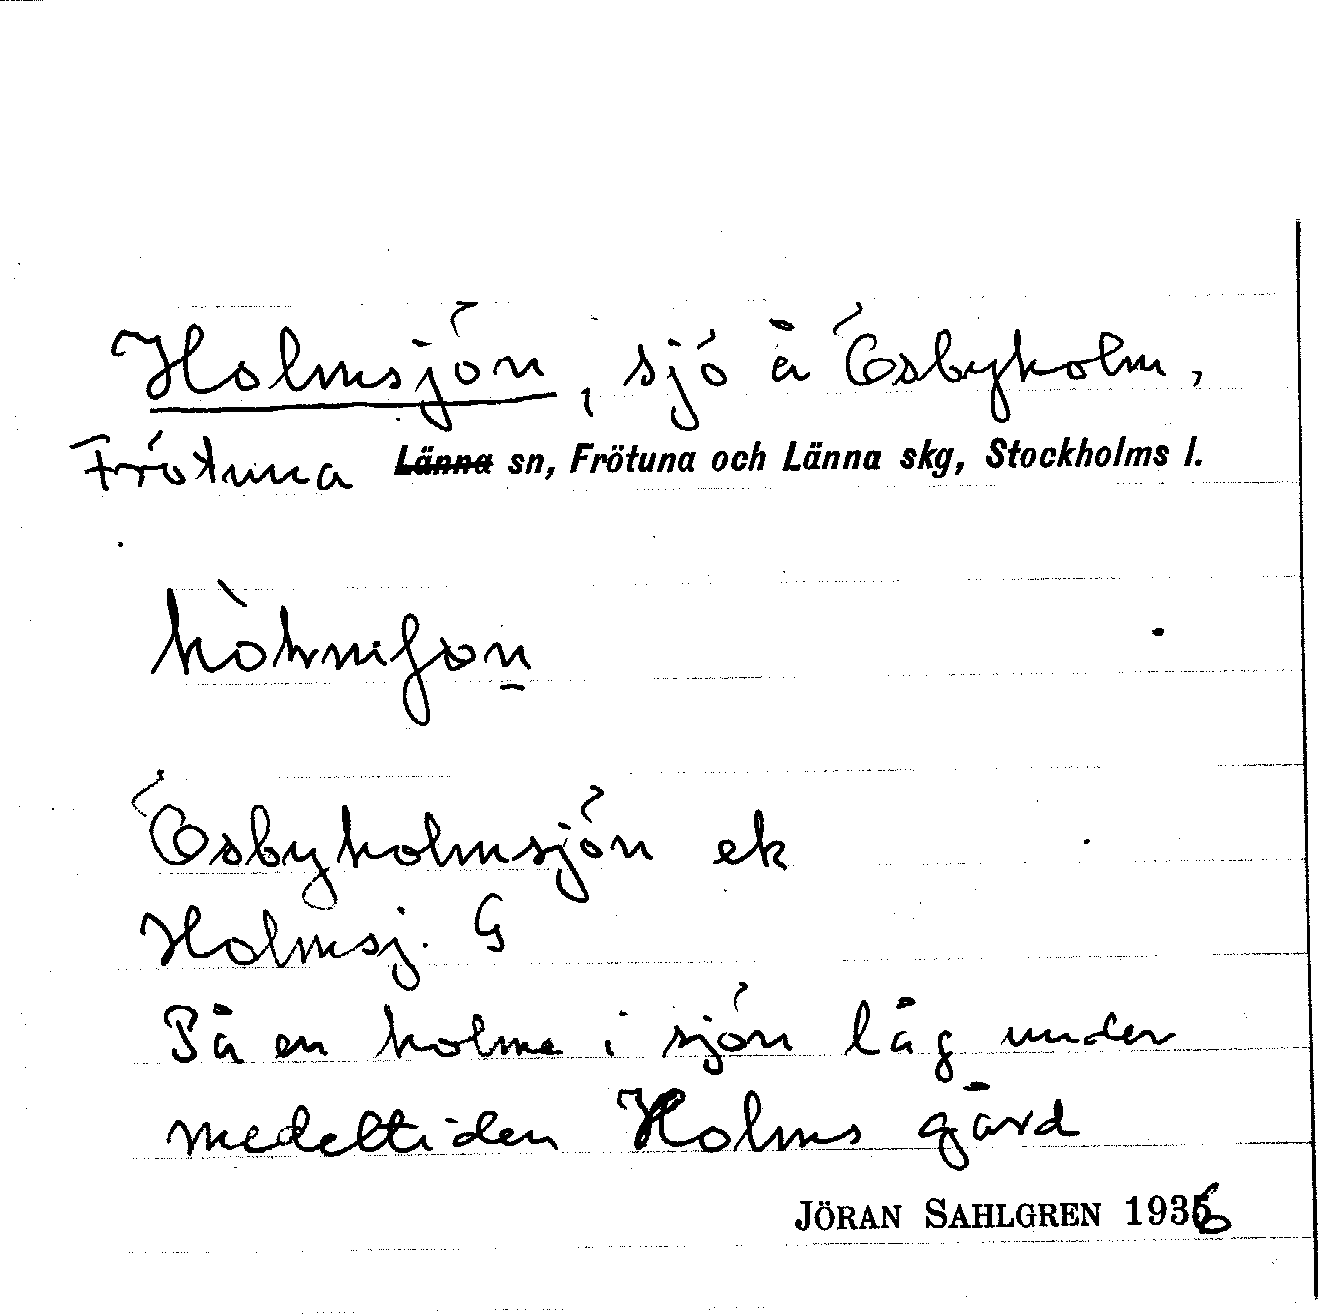 Holmsjön, sjö å Ösbyholm,
Frötuna Länna sn, Frötuna och Länna skg, Stockholms l.
Ösbyholmsjön ek
Holmsj. G
På en holme i sjön låg under
medeltiden Holms gård
JÖRAN SAHLGREN 1936